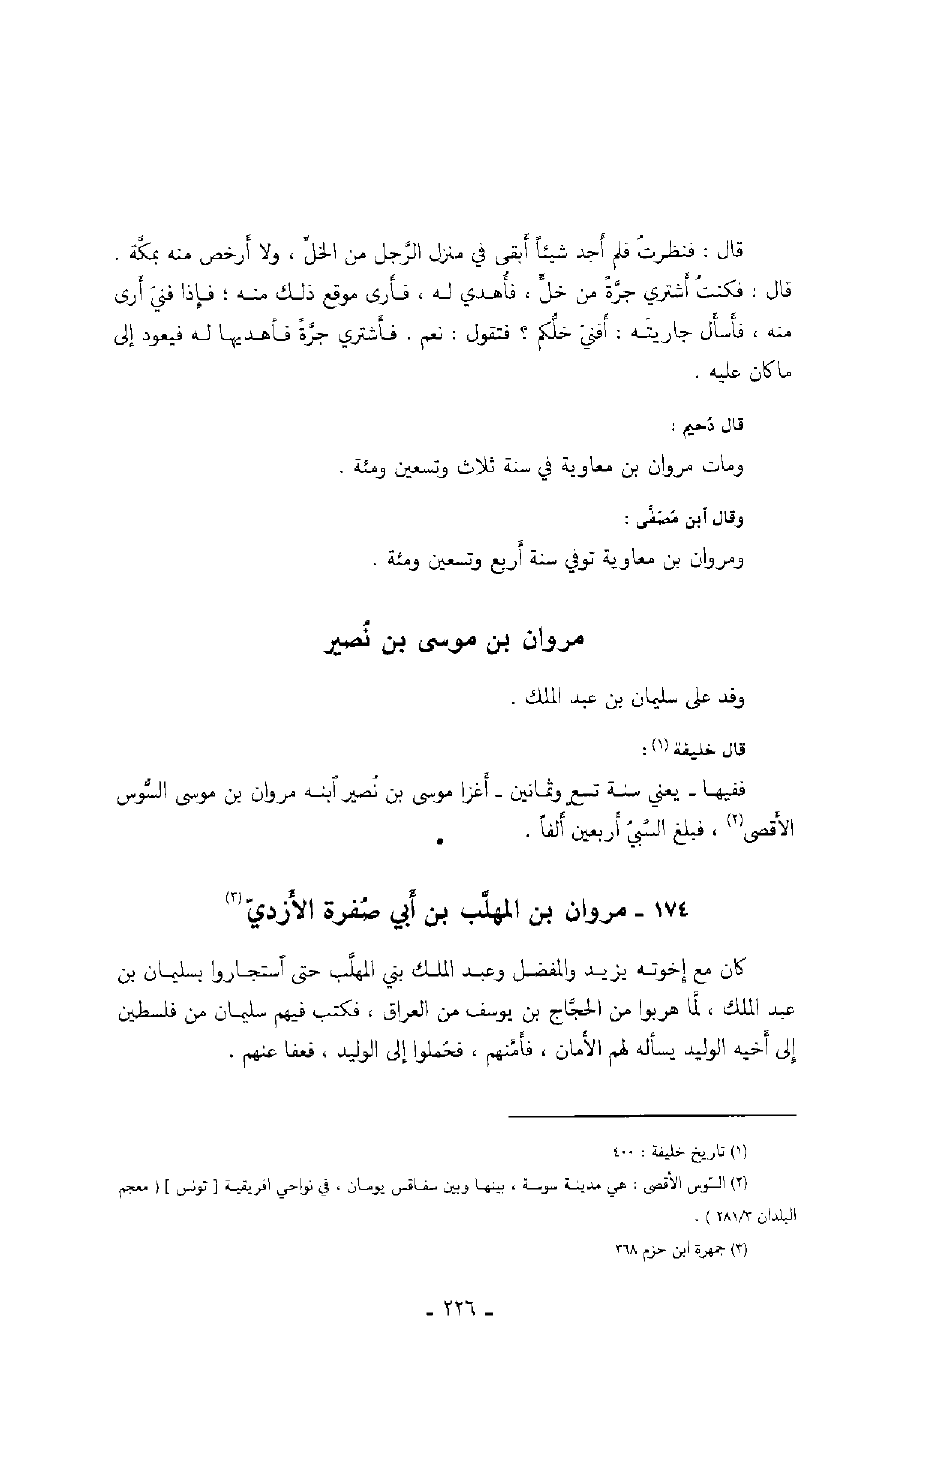 قال : فنظرتُ فلم أجد شيئاً أبقى في منزل الرَّجل من الخلِّ ، ولا أرخص منه بمكَّة .
قال : فكنتُ أشتري جرَّةً من خلٍّ ، فأُهدي له ، فأرى موقع ذلك منه ؛ فإذا فنيَ أرى
منه ، فأسأل جاريتَه : أفنيَ خلُّكم ؟ فتقول : نعم . فأشتري جرَّةً فأهديها له فيعود إلى
ماكان عليه .
قال دُحيم :
ومات مروان بن معاوية في سنة ثلاث وتسعين ومئة .
وقال ٱبن مُصَفَّى :
ومروان بن معاوية توفي سنة أربع وتسعين ومئة .
مروان بن موسى بن نُصير
وفد على سليمان بن عبد الملك .
قال خليفة (١) :
ففيها ـ يعني سنة تسع وثمانين ـ أغزا موسى بن نُصير ٱبنه مروان بن موسى السُّوس
الأقصى(٢) ، فبلغ السَّبيُ أربعين ألفاً .
١٧٤ ـ مروان بن المهلَّب بن أبي صُفرة الأزديّ(٣)
كان مع إخوته يزيد والمفضل وعبد الملك بني المهلَّب حتى ٱستجاروا بسليمان بن
عبد الملك ، لمَّا هربوا من الحجَّاج بن يوسف من العراق ، فكتب فيهم سليمان من فلسطين
إلى أخيه الوليد يسأله لهم الأمان ، فأمَّنهم ، فحُملوا إلى الوليد ، فعفا عنهم .
(١) تاريخ خليفة : ٤٠٠
(٢) السُّوس الأقصى : هي مدينة سوسة ، بينها وبين سفاقس يومان ، في نواحي افريقية [ تونس ] ( معجم
البلدان ٢٨١/٣ ) .
(٣) جمهرة ابن حزم ٣٦٨
ـ ٢٢٦ ـ